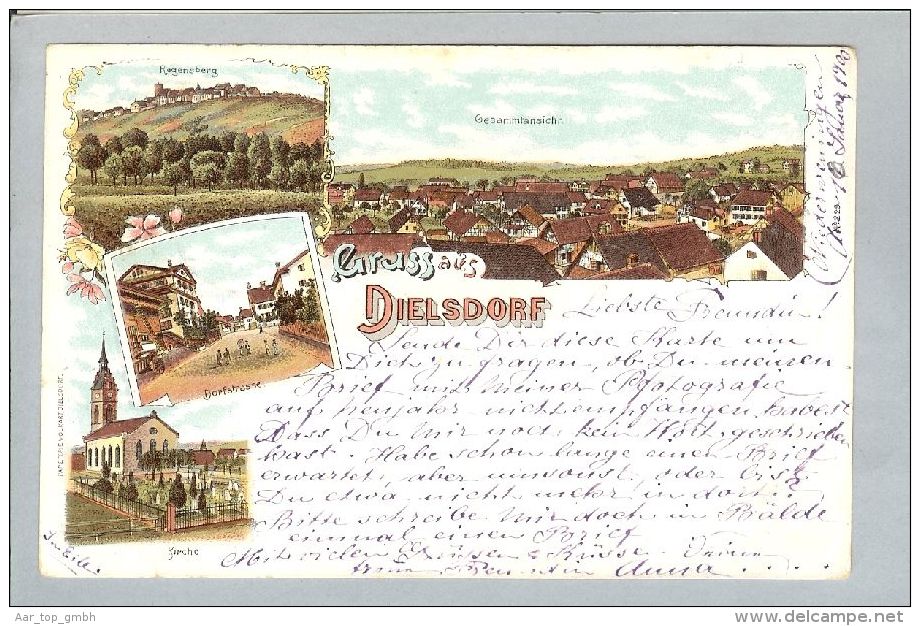 Regensberg
Gesammtansicht.
Gruss aus
DIELSDORF
Dorfstrasse.
Kirche
No 229
Januar 1900
Liebste Freundin!
Sende Dir diese Karte um
Dich zu fragen, ob Du meinen
Brief mit meiner Photografie
auf Neujahr nicht empfangen habest
Dass Du mir noch kein Wort geschrieben
hast. Habe schon lange einen Brief
erwartet, aber umsonst, oder bist
Du etwa nicht mehr in dort?
Bitte schreibe mir doch in Bälde
einmal einen Brief
Mit vielen Grüssen & Küsse. Deine
treue Freundin Anna.
In Eile.
Aar_top_gmbh
www.delcampe.net